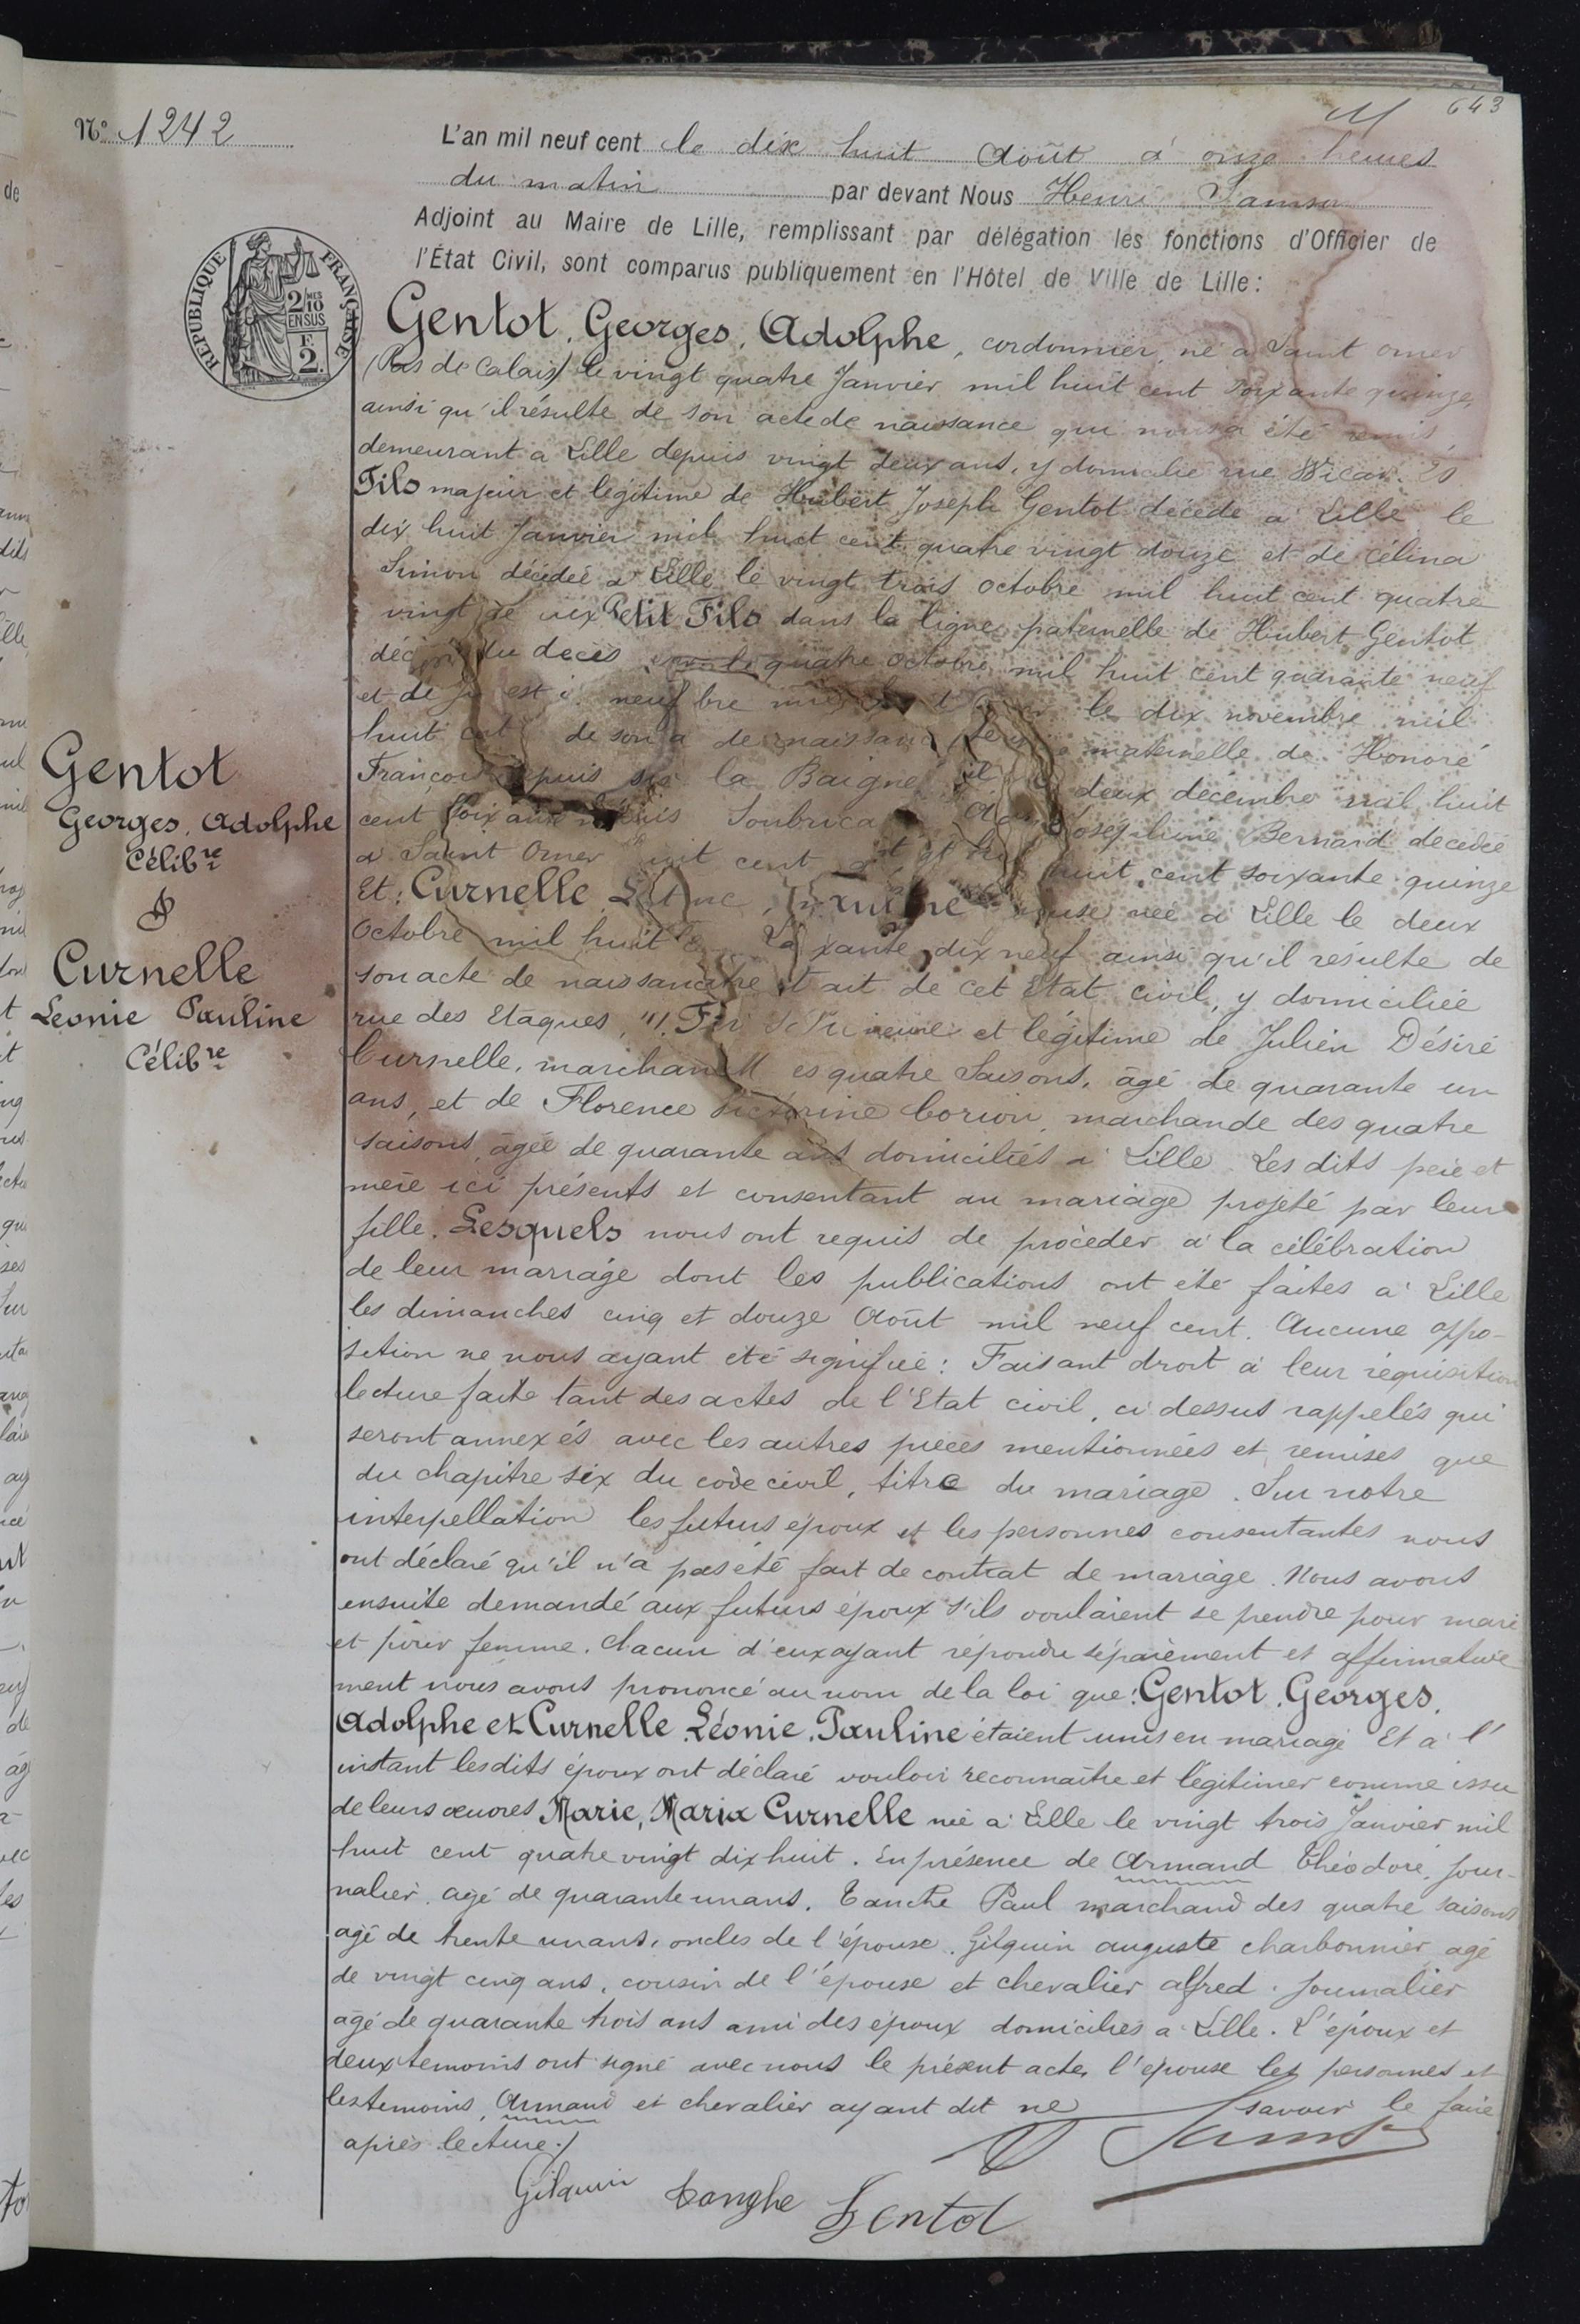 643
N° 1242
L'an mil neuf cent le dix huit Août à onze heures
du matin par devant Nous Henri Samson
Adjoint au Maire de Lille, remplissant par délégation les fonctions d'Officier de
l'État Civil, sont comparus publiquement en l'Hôtel de Ville de Lille:
RÉPUBLIQUE FRANÇAISE
2/10 MES
EN SUS
F
2.
Gentot, Georges, Adolphe, cordonnier, né à Saint Omer
(Pas de Calais) le vingt quatre Janvier mil huit cent soixante quinze,
ainsi qu'il résulte de son acte de naissance qui nous a été remis,
demeurant à Lille depuis vingt deux ans, y domicilié rue Wicar
Fils majeur et légitime de Hubert Joseph Gentot décédé à Lille le
dix huit Janvier mil huit cent quatre vingt douze et de Célina
Simon décédée à Lille le vingt trois octobre mil huit cent quatre
vingt Petit Fils dans la ligne paternelle de Hubert Gentot
du décès quatre octobre mil huit cent quarante neuf
et de neuf le dix novembre mil
huit de son de naissance maternelle de Honoré
François puis la Baigne deux décembre mil huit
cent Joséphine Bernard décédée
à Saint Omer cent huit cent soixante quinze
Et: Curnelle née à Lille le deux
Octobre mil huit dix neuf ainsi qu'il résulte de
son acte de naissance de cet Etat civil, y domiciliée
rue des Etaques, et légitime de Julien Désiré
Curnelle, marchand quatre Saisons, âgé de quarante un
ans, et de Florence Corion, marchande des quatre
saisons, âgée de quarante ans domiciliés à Lille. Les dits père et
mère ici présents et consentant au mariage projeté par leur
fille. Lesquels nous ont requis de procéder à la célébration
de leur mariage dont les publications ont été faites à Lille
les dimanches cinq et douze Août mil neuf cent. Aucune oppo-
sition ne nous ayant été signifiée: Faisant droit à leur réquisition
lecture faite tant des actes de l'Etat civil, ci dessus rappelés qui
seront annexés avec les autres pièces mentionnées et remises que
du chapitre six du code civil, titre du mariage. Sur notre
interpellation les futurs époux et les personnes consentantes nous
ont déclaré qu'il n'a pas été fait de contrat de mariage. Nous avons
ensuite demandé aux futurs époux s'ils voulaient se prendre pour mari
et pour femme. Chacun d'eux ayant répondu séparément et affirmative
ment nous avons prononcé au nom de la loi que: Gentot, Georges,
Adolphe et Curnelle, Léonie, Pauline étaient unis en mariage Et à l'
instant lesdits époux ont déclaré vouloir reconnaître et légitimer comme issu
de leurs œuvres Marie, Maria Curnelle née à Lille le vingt trois Janvier mil
huit cent quatre vingt dix huit. En présence de Armand Théodore, jour-
nalier, âgé de quarante un ans, Tanche Paul marchand des quatre saisons
âgé de trente un ans, oncles de l'épouse, Gilquin auguste charbonnier âgé
de vingt cinq ans, cousin de l'épouse et chevalier alfred, journalier
âgé de quarante trois ans ami des époux domiciliés à Lille. L'époux et
deux témoins ont signé avec nous le présent acte, l'épouse les personnes et
les témoins, Armand et chevalier ayant dit ne savoir le faire
après lecture./
Gilquin Tanghe Gentot
Gentot
Georges, Adolphe
Célibre
&
Curnelle
Leonie Pauline
Célibre